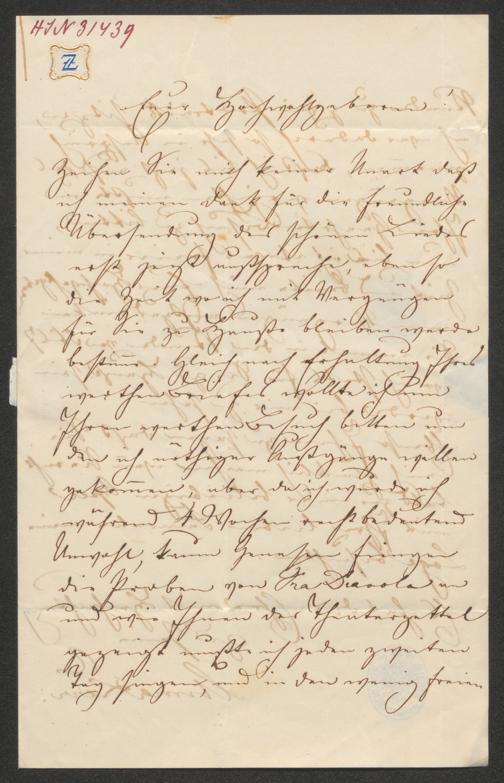 HIN 31439
Z
Euer Hochwohlgeboren!
Zeihen Sie mich keiner Unart daß
ich meinen Dank für die freundliche
Übersendung des schönen Liedes
erst jetzt ausspreche, ebenso
die Zeit wo ich mit Vergnügen
für Sie zu Hause bleiben werde
bestimme. Gleich nach Erhaltung Ihres
werthen Briefes wollte ich um
Ihren werthen Besuch bitten um
den ich nöthiger Ausgänge willen
gekommen, aber da ich wurde ich
während 4 Wochen recht bedeutend
Unwohl, kaum Genesen fingen
die Proben von Fra Diavolo an
und wie Ihnen der Theaterzettel
gezeigt mußte ich jeden zweiten
Tag singen, und in den wenig freien